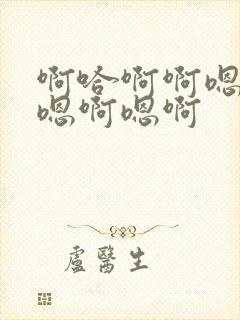 啊哈啊啊嗯
嗯啊嗯啊
盧醫生